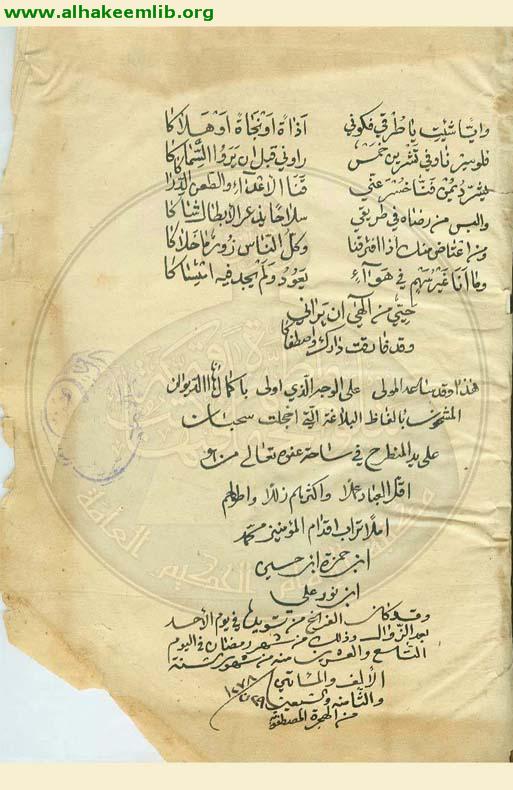 www.alhakeemlib.org
وايّا شئيت يا طرقي فكوني    اذاة او نجاة او هلاكا
فلو سرنا وفي تشرين خمس    راوني قبل ان يروا السّماكا
يشرد يمن فنّا خسر عنّي    قنا الاعداء والطعن الدراكا
والبس من رضاه في طريقي    سلاحا يذعر الابطال شاكا
ومن اعتاض منك اذا افترقنا    وكل الناس زور ما خلاكا
وما انا غير سهم في هواء    يعود ولم يجد فيه امتساكا
حيّى من الهي ان يراني
وقد فارقت دارك واصطفاكا
هذا وقد ساعد المولى على الوجه الذي اولى باكمال هذا الديوان
المشحون بالفاظ البلاغة التي اخجلت سحبان
على يد المنطرح في ساحة عفوه تعالى من هو
اقل العباد عملا واكثرهم زللا واطولهم
املا تراب اقدام المؤمنين محمد
ابن حمزة ابن حسين
ابن نور علي
وقد كان الفراغ من تسويدها في يوم الأحد
بعد الزوال وذلك من شهر رمضان في اليوم
التاسع والعشرين منه من شهور سنة
الألف والمأتين
والثامنه والسبعين
من الهجرة المصطفويه
٢٩ ١٢٧٨